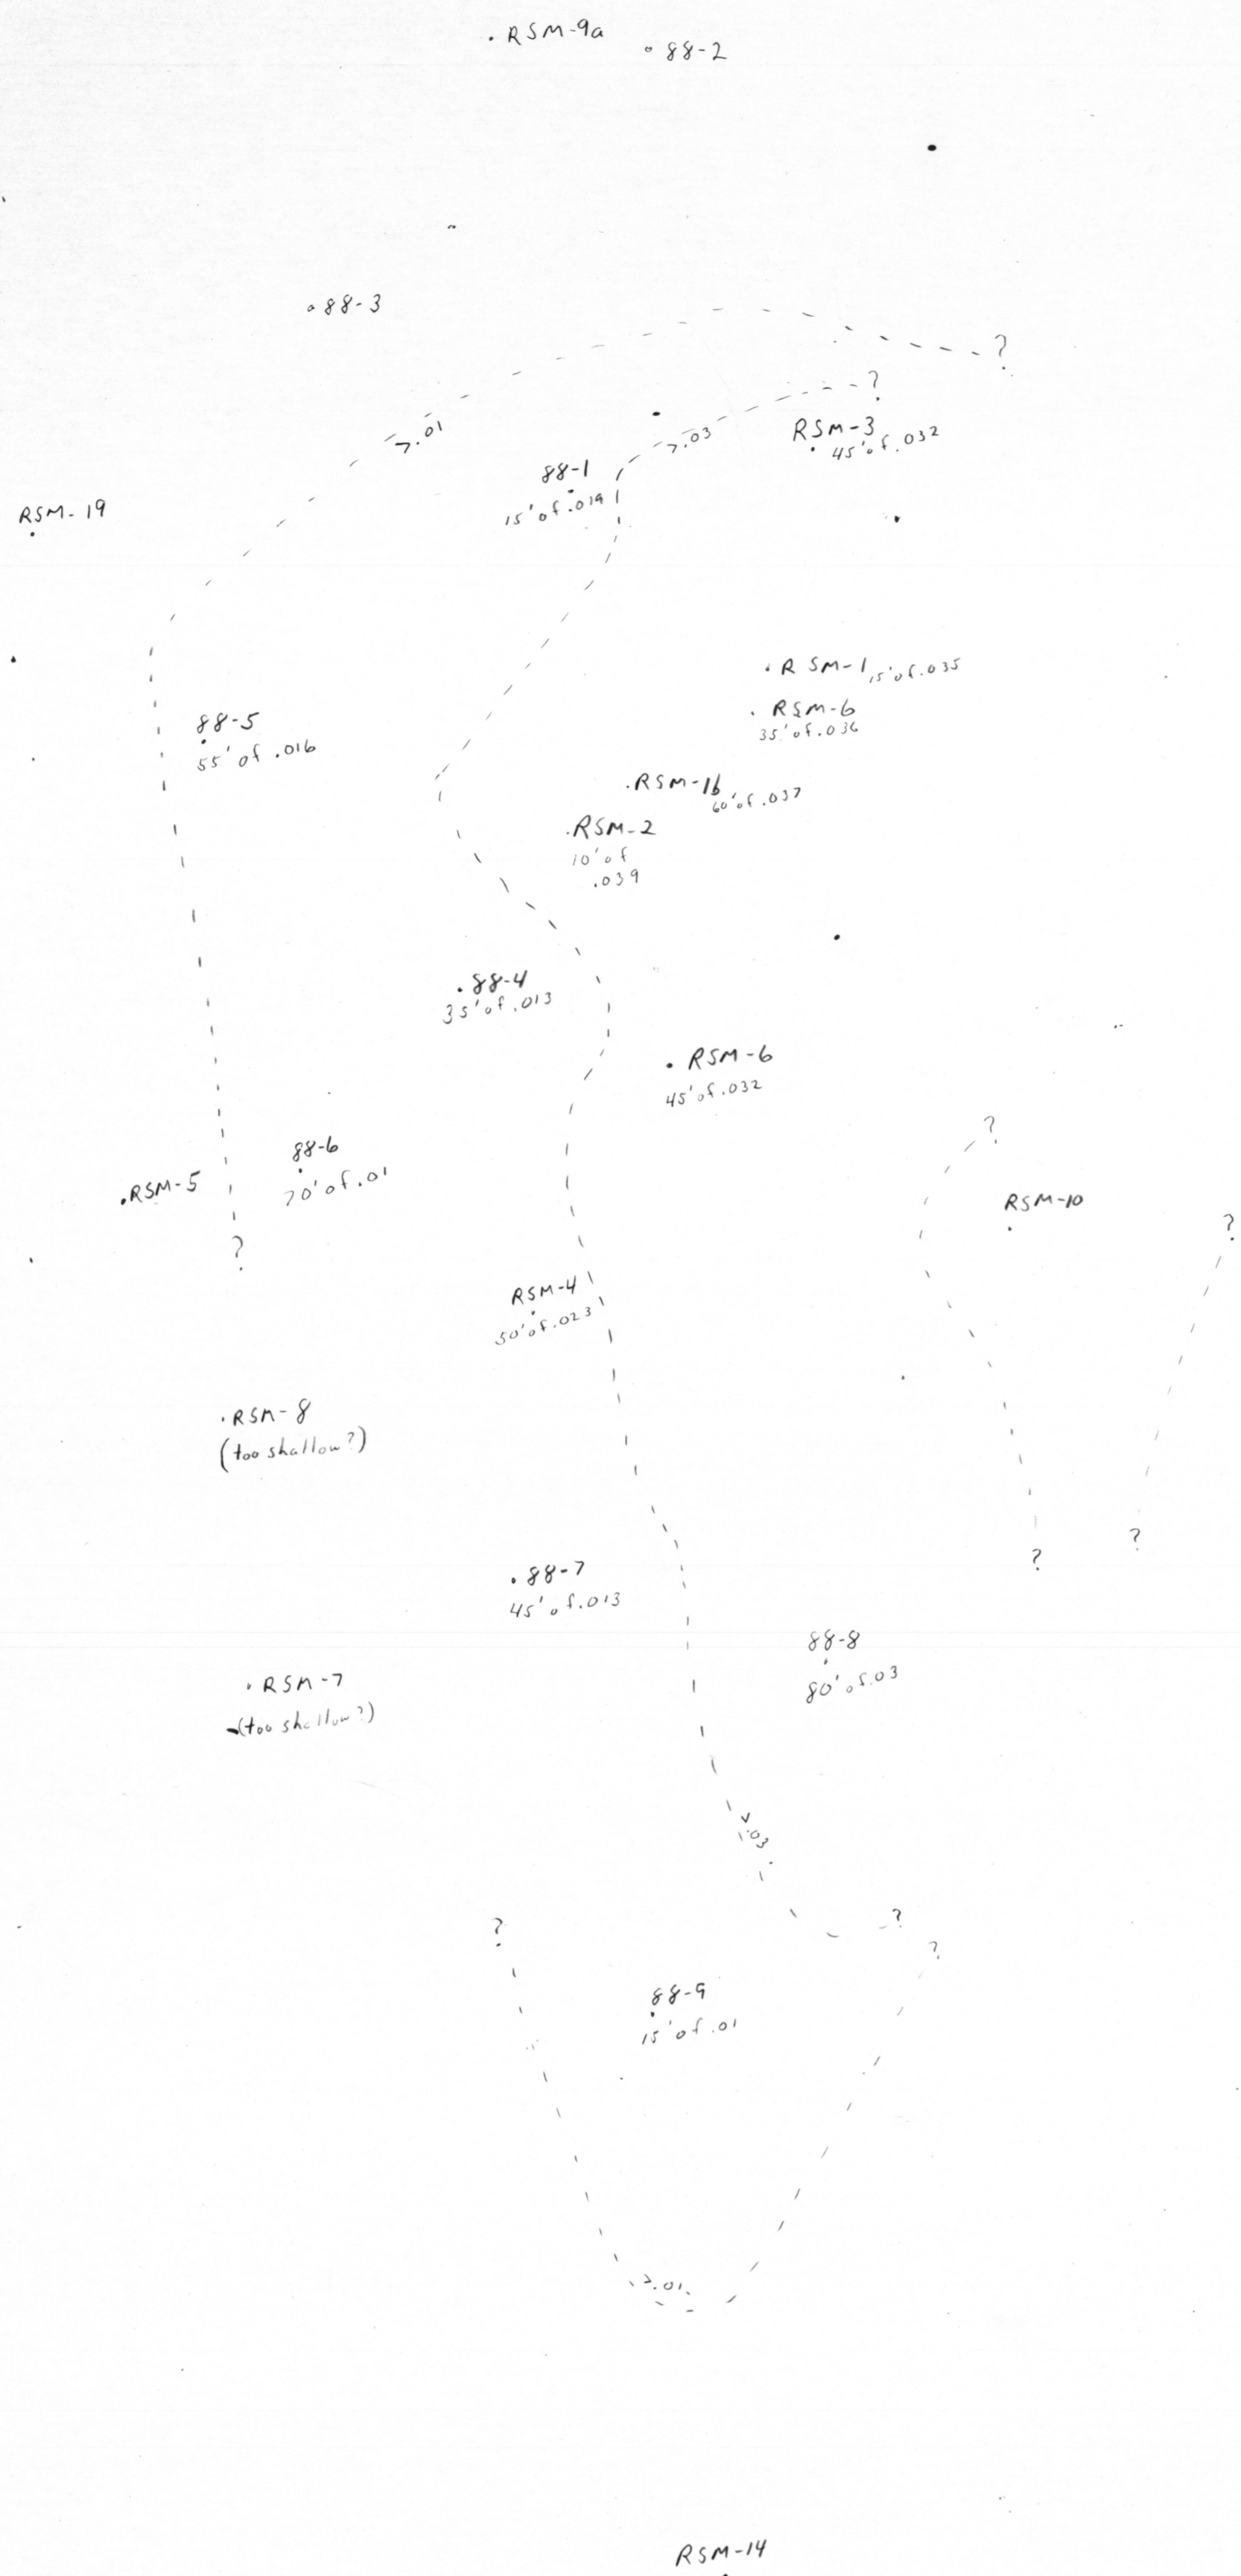 RSM-9a
88-2
88-3
?
?
>.01
>.03
RSM-3
45' of .032
88-1
15' of .019
RSM-19
RSM-1 15' of .035
RSM-6
35' of .036
88-5
55' of .016
RSM-1b
60' of .037
RSM-2
10' of
.039
88-4
35' of .013
RSM-6
45' of .032
?
88-6
70' of .01
RSM-5
RSM-10
?
?
RSM-4
50' of .023
RSM-8
(too shallow?)
?
?
88-7
45' of .013
88-8
80' of .03
RSM-7
(too shallow?)
>.03
?
?
?
88-9
15' of .01
>.01
RSM-14